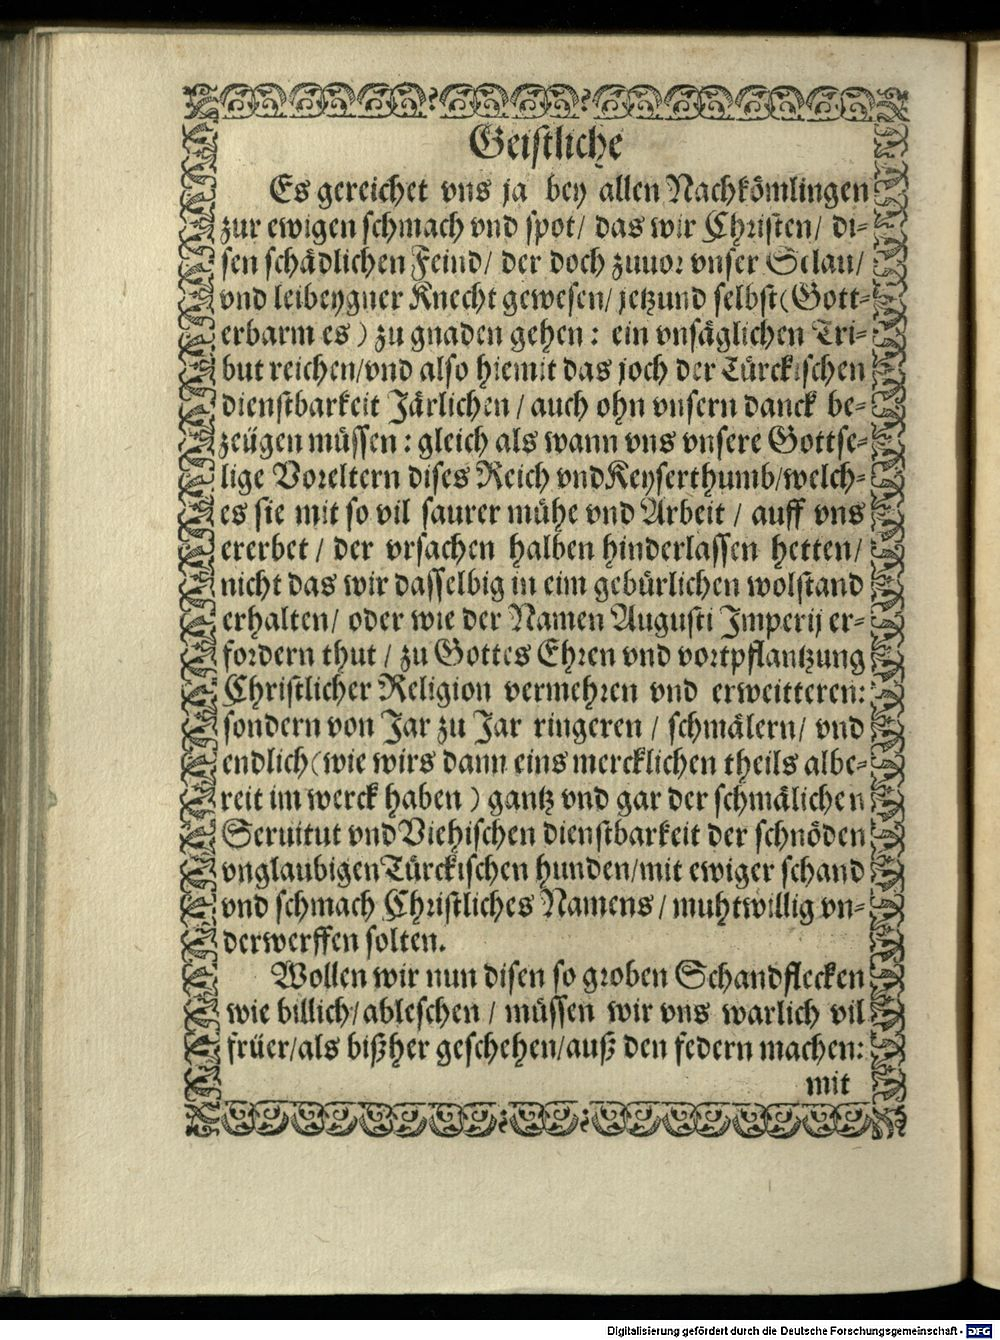 Geistliche
Es gereichet vns ja bey allen Nachkömlingen
zur ewigen schmach vnd spot/ das wir Christen/ di-
sen schädlichen Feind/ der doch zuuor vnser Sclau/
vnd leibeygner Knecht gewesen/ jetzund selbst (Gott-
erbarm es) zu gnaden gehen: ein vnsäglichen Tri-
but reichen/vnd also hiemit das joch der Türckischen
dienstbarkeit Järlichen / auch ohn vnsern danck be-
zeügen müssen: gleich als wann vns vnsere Gottse-
lige Voreltern dises Reich vnd Keyserthumb/welch-
es sie mit so vil saurer mühe vnd Arbeit / auff vns
ererbet / der vrsachen halben hinderlassen hetten/
nicht das wir dasselbig in eim gebürlichen wolstand
erhalten/ oder wie der Namen Augusti Imperij er-
fordern thut / zu Gottes Ehren vnd vortpflantzung
Christlicher Religion vermehren vnd erweitteren:
sondern von Jar zu Jar ringeren / schmälern/ vnd
endlich (wie wirs dann eins mercklichen theils albe-
reit im werck haben) gantz vnd gar der schmälichen
Seruitut vnd Viehischen dienstbarkeit der schnöden
vnglaubigen Türckischen hunden/mit ewiger schand
vnd schmach Christliches Namens / muhtwillig vn-
derwerffen solten.
Wollen wir nun disen so groben Schandflecken
wie billich/ ableschen / müssen wir vns warlich vil
früer/als bißher geschehen/auß den federn machen:
mit
Digitalisierung gefördert durch die Deutsche Forschungsgemeinschaft - DFG